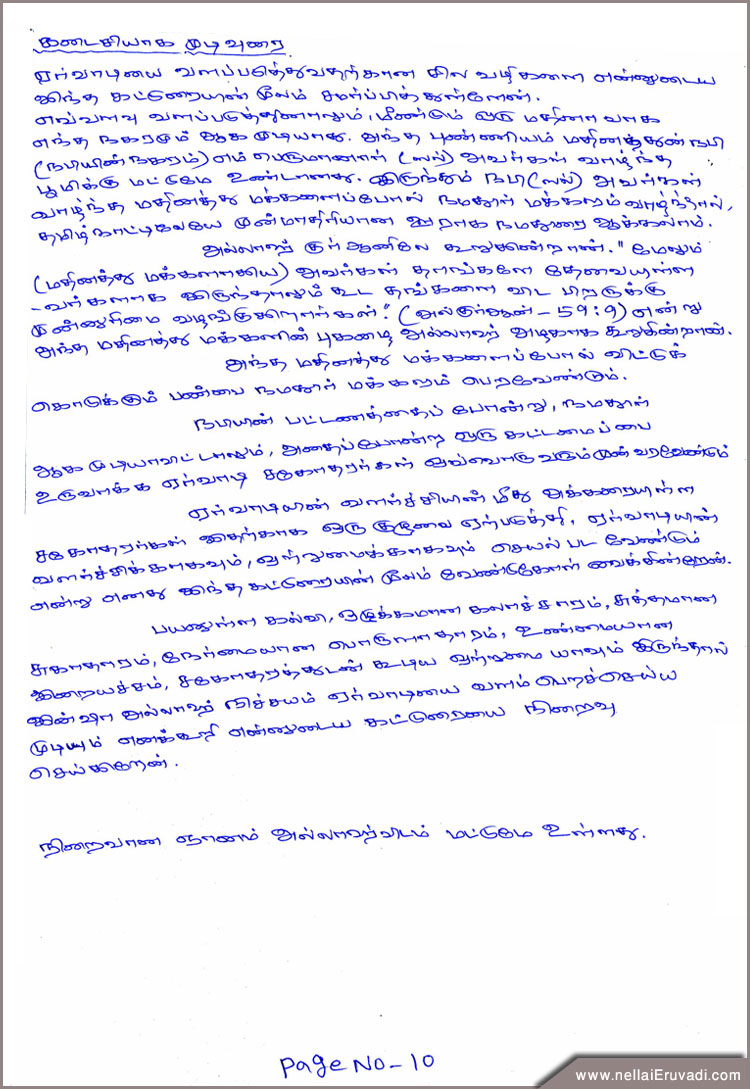 கடைசியாக முடிவுரை
ஏர்வாடியை வளப்படுத்துவதற்கான சில வழிகளை என்னுடைய
இந்த கட்டுரையின் மூலம் சமர்ப்பித்துள்ளேன்.
எவ்வளவு வளப்படுத்தினாலும், மீண்டும் ஒரு மதினா வாக
எந்த நகரமும் ஆக முடியாது. அந்த புண்ணியம் மதினத்துன் நபி
(நபியின் நகரம்) எம் பெருமானார் (ஸல்) அவர்கள் வாழ்ந்த
பூமிக்கு மட்டுமே உண்டானது. இருந்தும் நபி (ஸல்) அவர்கள்
வாழ்ந்த மதினத்து மக்களைப்போல் நமதூர் மக்களும் வாழ்ந்தால்,
தமிழ்நாட்டிலேயே முன்மாதிரியான ஊராக நமதூரை ஆக்கலாம்.
அல்லாஹ் குர்ஆனிலே கூறுகின்றான். "மேலும்
(மதினத்து மக்களாகிய) அவர்கள் தாங்களே தேவையுள்ள
-வர்களாக இருந்தாலும் கூட தங்களை விட பிறருக்கு
முன்னுரிமை வழங்குகிறார்கள்." (அல்குர்ஆன் - 59:9) என்று
அந்த மதினத்து மக்களின் புகழை அல்லாஹ் அழகாக கூறுகின்றான்.
அந்த மதினத்து மக்களைப்போல் விட்டுக்
கொடுக்கும் பண்பை நமதூர் மக்களும் பெறவேண்டும்.
நபியின் பட்டணத்தைப் போன்று, நமதூர்
ஆக முடியாவிட்டாலும், அதைப்போன்ற ஒரு கட்டமைப்பை
உருவாக்க ஏர்வாடி சகோதரர்கள் ஒவ்வொருவரும் முன் வரவேண்டும்
ஏர்வாடியின் வளர்ச்சியின் மீது அக்கறையுள்ள
சகோதரர்கள் இதற்காக ஒரு குழுவை ஏற்படுத்தி, ஏர்வாடியின்
வளர்ச்சிக்காகவும், ஒற்றுமைக்காகவும் செயல் பட வேண்டும்
என்று எனது இந்த கட்டுரையின் மூலம் வேண்டுகோள் வைக்கின்றேன்.
பயனுள்ள கல்வி, ஒழுக்கமான கலாச்சாரம், சுத்தமான
சுகாதாரம், நேர்மையான பொருளாதாரம், உண்மையான
இறையச்சம், சகோதரத்துடன் கூடிய ஒற்றுமை யாவும் இருந்தால்
இன்ஷா அல்லாஹ் நிச்சயம் ஏர்வாடியை வளம் பெறச்செய்ய
முடியும் எனக்கூறி என்னுடைய கட்டுரையை நிறைவு
செய்கிறேன்.
நிறைவான ஞானம் அல்லாஹ்விடம் மட்டுமே உள்ளது.
Page No-10
www.nellaiEruvadi.com